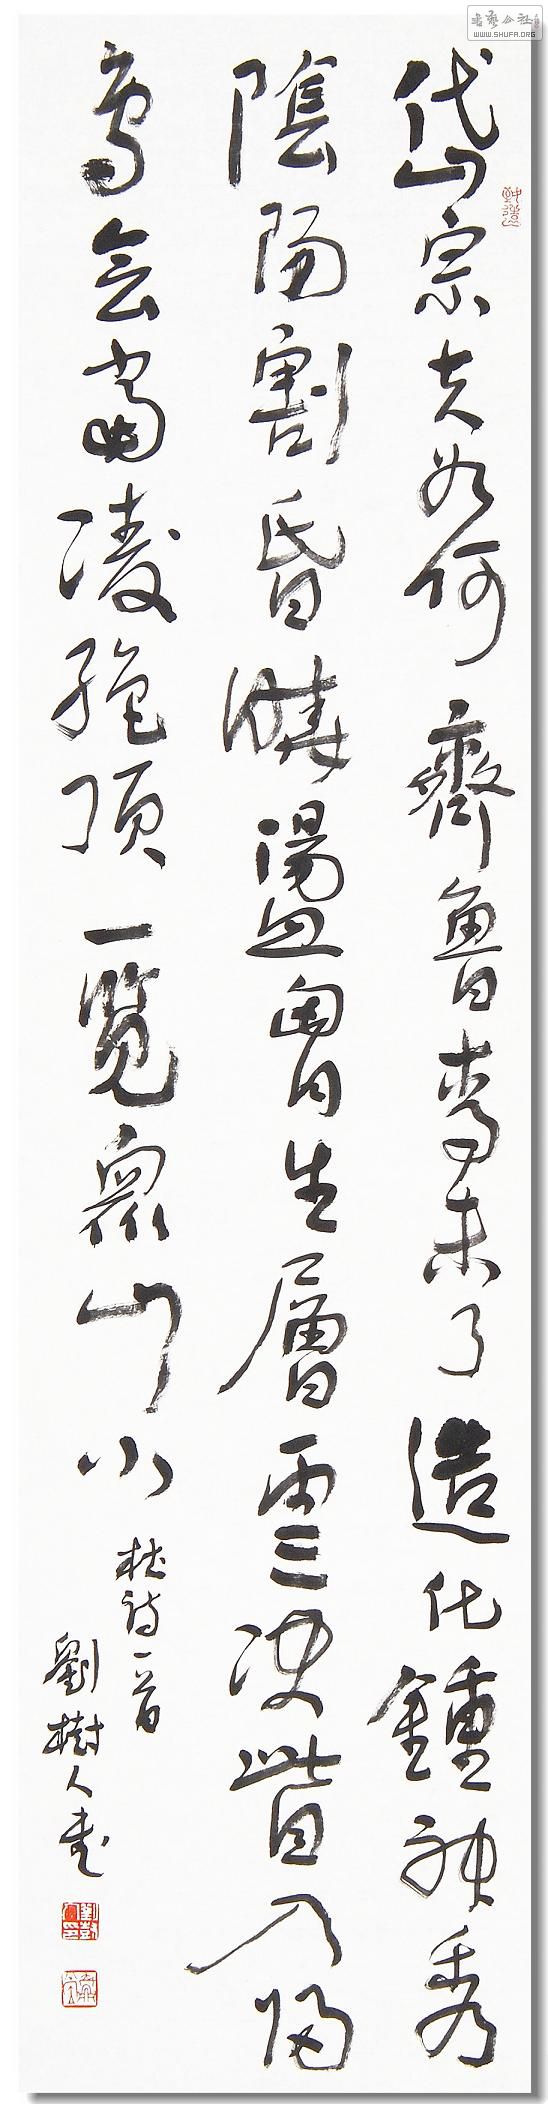 岱宗夫如何齊魯青未了造化鍾神秀
陰陽割昏曉盪胷生層雲決眥入歸
鳥會當凌絕頂一覽眾山小
杜詩一首
劉樹人書
書藝公社
WWW.SHUFA.ORG